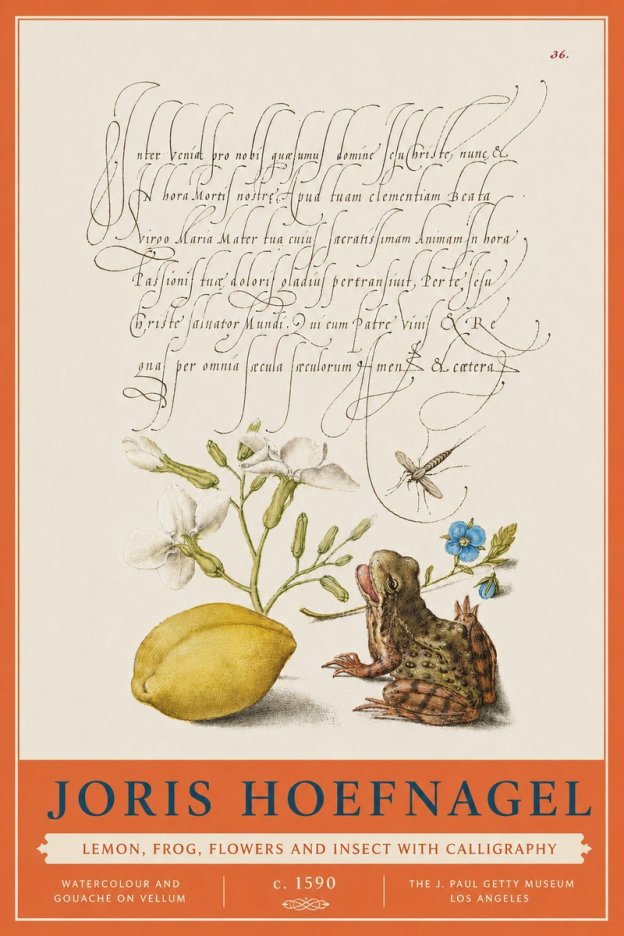 36.
nter veniat pro nobis quæsumus domine Jesu Christe nunc &
IN hora Mortis nostrę Apud tuam clementiam Beata
Virgo Maria Mater tua cuius sacratissimam Animam In hora
Passionis tuę doloris gladius pertransiuit, Per te Jesu
Christe saluator Mundi. Qui cum Patre Viuis & Re
gnas per omnia sæcula sæculorum Amen & cætera
JORIS HOEFNAGEL
LEMON, FROG, FLOWERS AND INSECT WITH CALLIGRAPHY
WATERCOLOUR AND
GOUACHE ON VELLUM
c. 1590
THE J. PAUL GETTY MUSEUM
LOS ANGELES